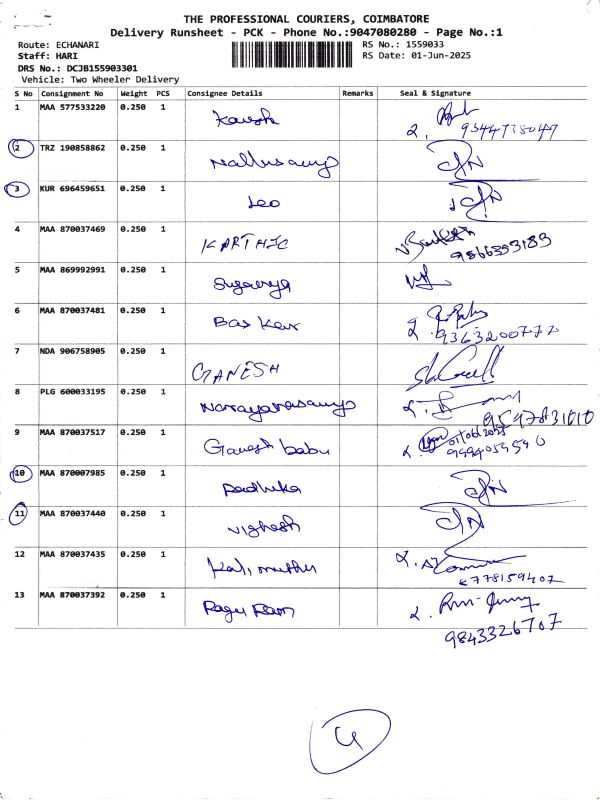 THE PROFESSIONAL COURIERS, COIMBATORE
Delivery Runsheet - PCK - Phone No.:9047080280 - Page No.:1
Route: ECHANARI
RS No.: 1559033
Staff: HARI
RS Date: 01-Jun-2025
DRS No.: DCJB155903301
Vehicle: Two Wheeler Delivery
S No Consignment No Weight PCS Consignee Details Remarks Seal & Signature
1 MAA 577533220 0.250 1
2 TRZ 190858862 0.250 1 Nallusamy
3 KUR 696459651 0.250 1 Leo
4 MAA 870037469 0.250 1 KARTHIC
5 MAA 869992991 0.250 1
6 MAA 870037481 0.250 1 Bas Ker
9363200777
7 NDA 906758905 0.250 1 GANESH
8 PLG 600033195 0.250 1 Narayanasamy
9 MAA 870037517 0.250 1 Ganesh babu
01/06/2025
10 MAA 870007985 0.250 1 Radhika
11 MAA 870037440 0.250 1 Vighesh
12 MAA 870037435 0.250 1 Kali muthu
13 MAA 870037392 0.250 1 Ragu Ram
9843326707
4